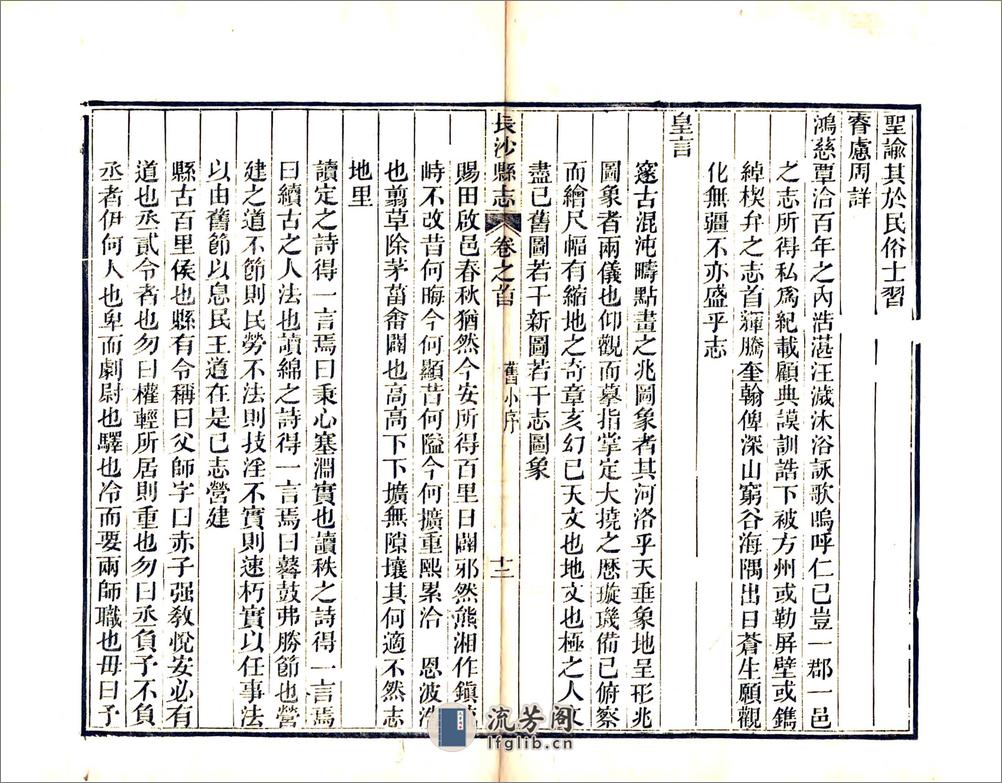 聖諭其於民俗士習
睿慮周詳
鴻慈覃洽百年之內浩湛汪濊沐浴詠歌嗚呼仁已豈一郡一邑
之志所得私爲紀載顧典謨訓誥下被方州或勒屏壁或鐫
綽楔弁之志首輝騰奎翰俾深山窮谷海隅出日蒼生願觀
化無疆不亦盛乎志
皇言
邃古混沌疇點畫之兆圖象者其河洛乎天垂象地呈形兆
圖象者兩儀也仰觀而摹指掌定大撓之曆璇璣備已俯察
而繪尺幅有縮地之奇章亥幻已天文也地文也極之人文
盡已舊圖若干新圖若干志圖象
長沙縣志
卷之首
舊小序
十二
賜田啟邑春秋猶然今安所得百里日闢邪然熊湘作鎭
峙不改昔何晦今何顯昔何隘今何擴重熙累洽 恩波浩
也翦草除茅菑畬闢也高高下下壙無隙壤其何適不然志
地里
讀定之詩得一言焉曰秉心塞淵實也讀秩之詩得一言焉
曰續古之人法也讀綿之詩得一言焉曰鼛鼓弗勝節也營
建之道不節則民勞不法則技淫不實則速朽實以任事法
以由舊節以息民王道在是已志營建
縣古百里侯也縣有令稱曰父師字曰赤子强敎悅安必有
道也丞貳令者也勿曰權輕所居則重也勿曰丞負予不負
丞者伊何人也卑而劇尉也驛也冷而要兩師職也毋曰予
流芳阁
lfglib.cn